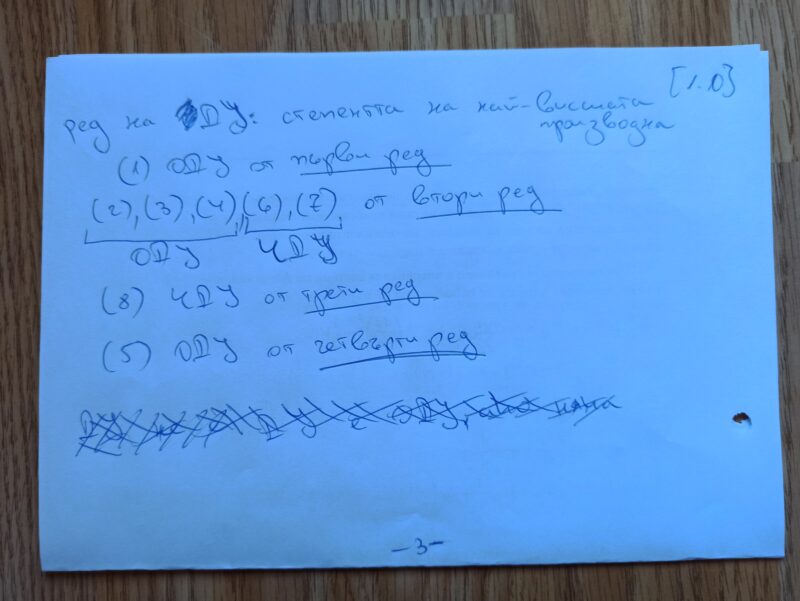 [1.0]
ред на ДУ: степентта на най-високата
производна
(1) ОДУ от първи ред
(2),(3),(4),(6),(7) от втори ред
ОДУ ЧДУ
(8) ЧДУ от трети ред
(5) ОДУ от четвърти ред
-3-